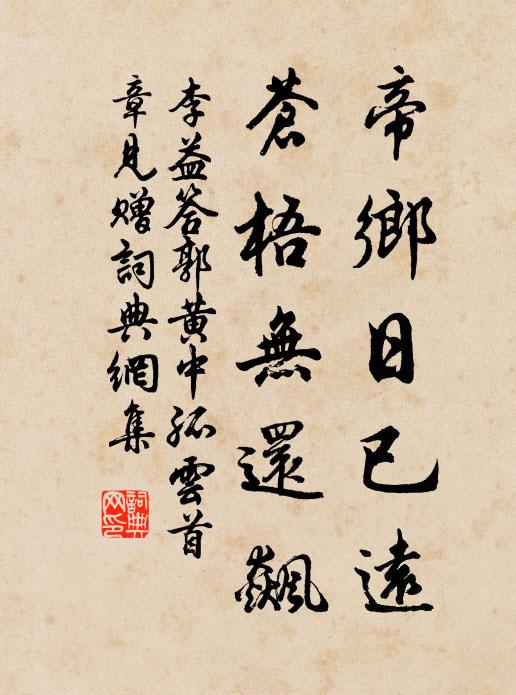 帝鄉日已遠
蒼梧無還飆
李益答郭黃中孤雲首
章見贈詞典網集
詞典網印